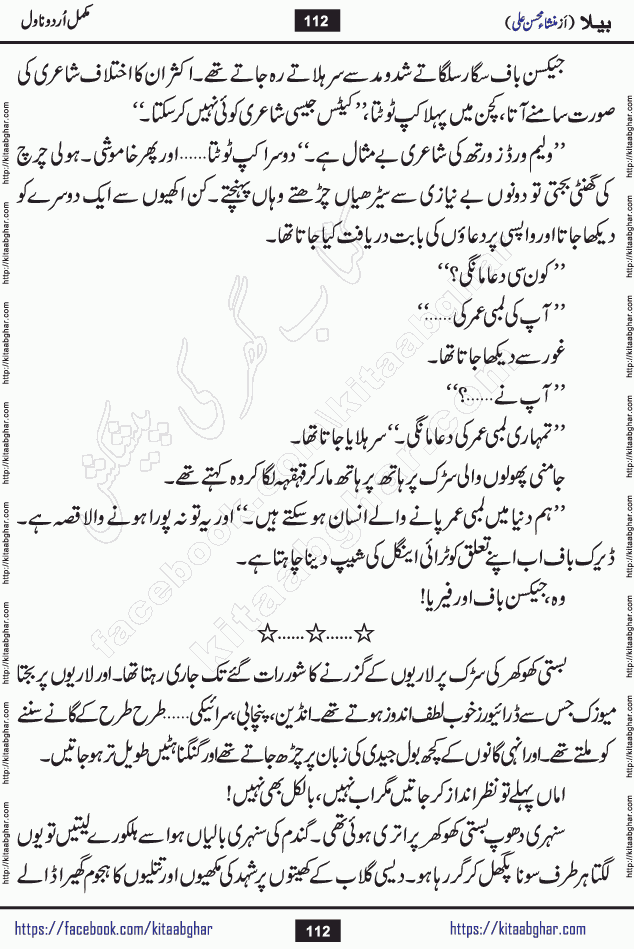 بیلا (از منشاء محسن علی) 112 مکمل اُردو ناول
جیکسن باف سگار سلگاتے شدومد سے سر ہلاتے رہ جاتے تھے۔ اکثر ان کا اختلاف شاعری کی
صورت سامنے آتا، کچن میں پہلا کپ ٹوٹتا، ’’کیٹس جیسی شاعری کوئی نہیں کر سکتا۔‘‘
’’ولیم ورڈز ورتھ کی شاعری بے مثال ہے۔‘‘ دوسرا کپ ٹوٹتا...... اور پھر خاموشی۔ ہولی چرچ
کی گھنٹی بجتی تو دونوں بے نیازی سے سیڑھیاں چڑھتے وہاں پہنچتے۔ کن اکھیوں سے ایک دوسرے کو
دیکھا جاتا اور واپسی پر دعاؤں کی بابت دریافت کیا جاتا تھا۔
’’کون سی دعا مانگی؟‘‘
’’آپ کی لمبی عمر کی......‘‘
غور سے دیکھا جاتا تھا۔
’’آپ نے......؟‘‘
’’تمہاری لمبی عمر کی دعا مانگی۔‘‘ سر ہلایا جاتا تھا۔
جامنی پھولوں والی سڑک پر ہاتھ پر ہاتھ مار کر قہقہہ لگا کر وہ کہتے تھے۔
’’ہم دنیا میں لمبی عمر پانے والے انسان ہو سکتے ہیں۔‘‘ اور یہ تو نہ پورا ہونے والا قصہ ہے۔
ڈیرک باف اب اپنے تعلق کو ٹرائی اینگل کی شیپ دینا چاہتا ہے۔
وہ، جیکسن باف اور فیریا!
☆......☆......☆
بستی کھوکھر کی سڑک پر لاریوں کے گزرنے کا شور رات گئے تک جاری رہتا تھا۔ اور لاریوں پر بجتا
میوزک جس سے ڈرائیورز خوب لطف اندوز ہوتے تھے۔ انڈین، پنجابی، سرائیکی...... طرح طرح کے گانے سننے
کو ملتے تھے۔ اور انہی گانوں کے کچھ بول جیدی کی زبان پر چڑھ جاتے تھے اور گنگناہٹیں طویل تر ہو جاتیں۔
اماں پہلے تو نظر انداز کر جاتیں مگر اب نہیں، بالکل بھی نہیں!
سنہری دھوپ بستی کھوکھر پر اتری ہوئی تھی۔ گندم کی سنہری بالیاں ہوا سے ہلکورے لیتیں تو یوں
لگتا ہر طرف سونا پگھل کر گر رہا ہو۔ دیسی گلاب کے کھیتوں پر شہد کی مکھیوں اور تتلیوں کا ہجوم گھیرا ڈالے
کتاب گھر کی پیشکش
facebook.com/kitaabghar
kitaabghar.com
http://kitaabghar.com
https://facebook.com/kitaabghar 112 https://kitaabghar.com